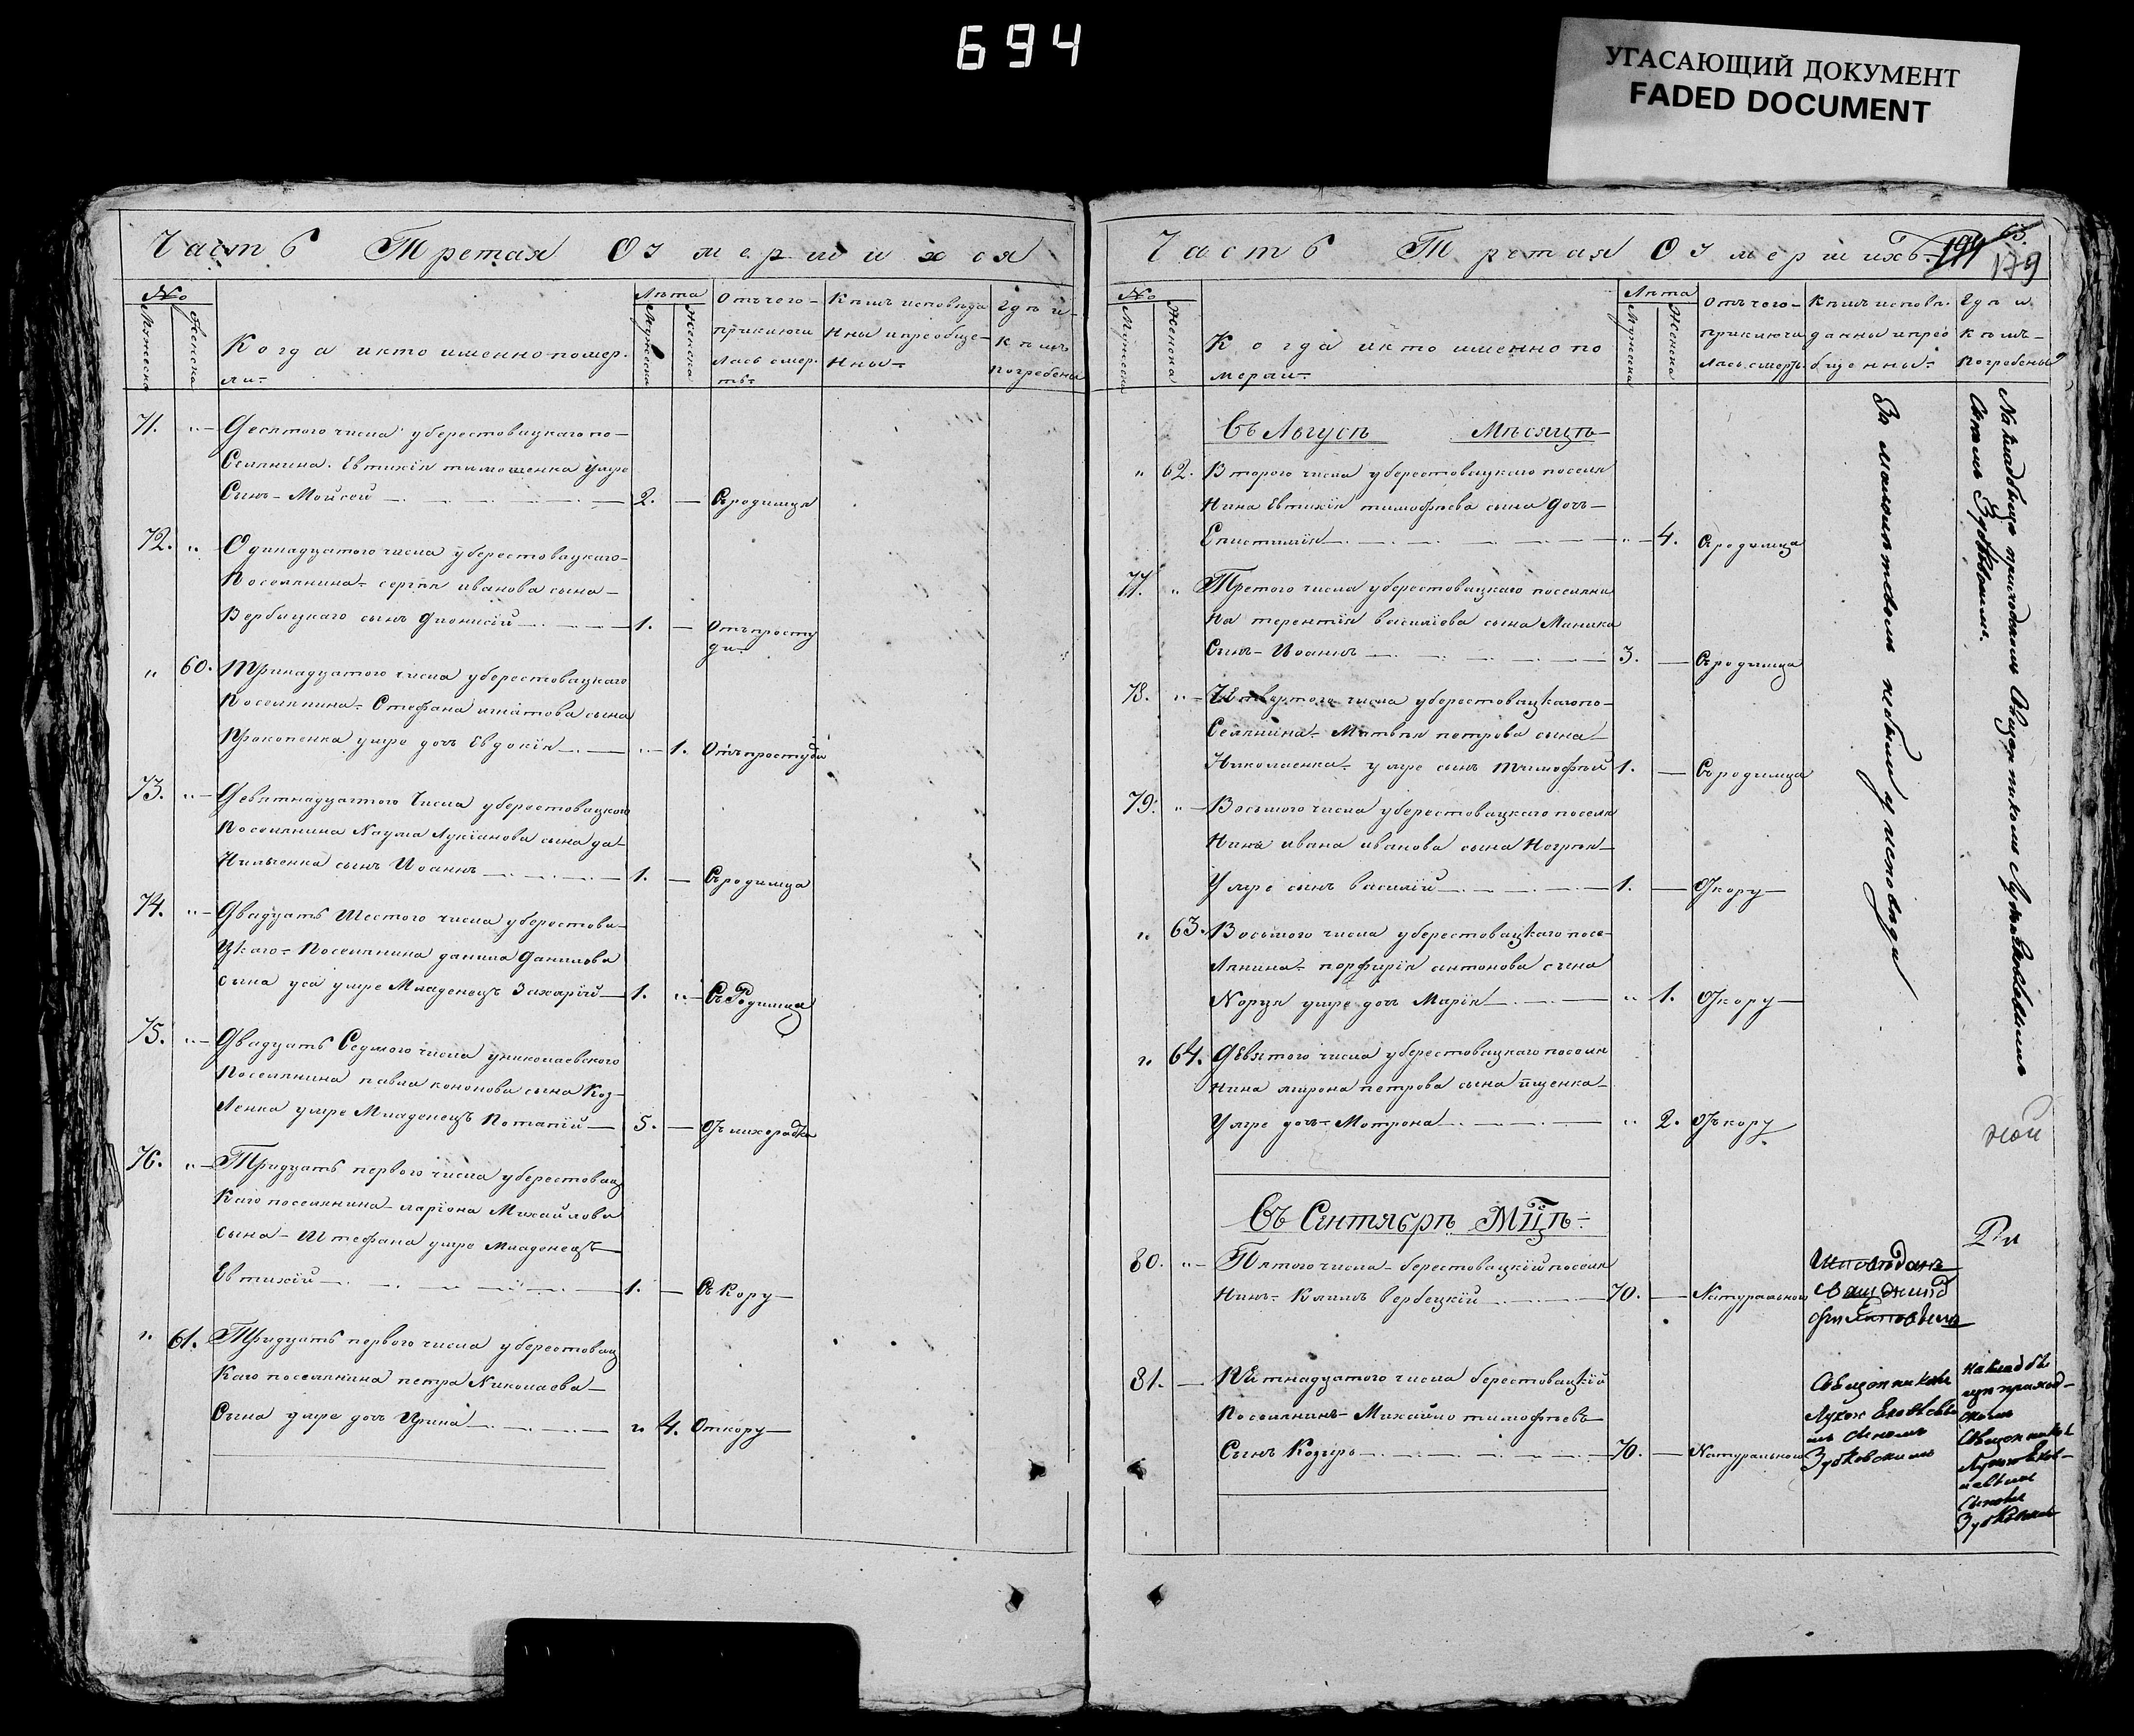 694
УГАСАЮЩИЙ ДОКУМЕНТ
FADED DOCUMENT
Часть Третая О умершихся
№
Мужеска
Женска
Когда и кто именно помер-
ли
Лѣта
Мужеска
Женска
Отъ чего
приключи
лась смер.
ть
Кѣмъ исповѣда
ны и преобще-
ны
Гдѣ и
кѣмъ
погребены
71. Десятого числа у берестовацкаго по-
селянина Евтихія тимошенка умре
Сынъ Мойсей 2. Съ родимца
72. Одинадцатого числа у берестовацкаго
Поселянина сергѣя иванова сына
Вербицкаго сынъ Дионисій 1. Отъ просту
ди
60. Тринадцатого числа у берестовацкаго
Поселянина Стефана игнатова сына
Прокопенка умре дочь Евдокія 1. Отъ простуди
73. Девятнадцатого Числа у берестовацкого
Поселянина Наума Лукіанова сына да-
нильченка сынъ Иоаннъ 1. Съ родимца
74. Двадцать Шестого числа у берестова-
цкаго Поселянина данила Данилова
сына уса умре Младенецъ Захарій 1. Съ Родимца
75. Двадцать Седмого числа у николаевского
Поселянина павла кононова сына Коз-
ленка умре Младенецъ Потапій 5. Отъ лихорадки
76. Тридцать первого числа у берестовац
каго поселянина ларіона Михайлова
сына Штефана умре Младенецъ
Евтихій 1. Съ Кору
61. Тридцать первого числа у берестовац
каго поселянина петра Николаева
Сына умре дочь Ирина 4. Отъ кору
Часть Третая О умершихъ
194
63.
179
№
Мужеска
Женска
Когда и кто именно по
мерли
Лѣта
Мужеска
Женска
Отъ чего
приключи
лась смерть
Кѣмъ исповѣ.
данны и прео
бщенны
Гдѣ и
кѣмъ
погребены
Въ Августѣ Мѣсяцѣ
62. Второго числа у берестовацкаго поселя
нина Евтихія тимофѣева сына дочь
Епистимія 4. Съ родимца
77. Третого числа у берестовацкаго поселяни
на терентія василіова сына
Сынъ Иоаннъ 3. Съ родимца
78. Четвертого числа у берестовацкаго по-
селянина Матвѣя петрова сына
Николаенка умре сынъ тимофѣй 1. Съ родимца
79. Восьмого числа у берестовацкаго поселя
нина ивана иванова сына
Умре сынъ василій 1. Отъ кору
63. Восьмого числа у берестовацкаго посе-
лянина порфирія антонова сына
умре дочь Марія 1. Отъ кору
64. Девятого числа у берестовацкаго поселя
нина мирона петрова сына
Умре дочь Мотрона 2. Отъ кору
За малолѣтствомъ небыли у исповѣди
На кладбище приходскомъ Священникомъ Лукою
Сыномъ
Въ Сентябрѣ Мцѣ
80. Пятого числа берестовацкій поселя
нинъ Климъ Вербецкій 70. Натуральною
Исповѣданъ
81. Пятнадцатого числа берестовацкій
Поселянинъ Михайло тимофѣевъ
Сынъ Козырь 70. Натуральною
Священникомъ
Лукою
сыномъ
Зубковскимъ
На кладби
щи приход-
скомъ
Священникомъ
Лукою
Сыномъ